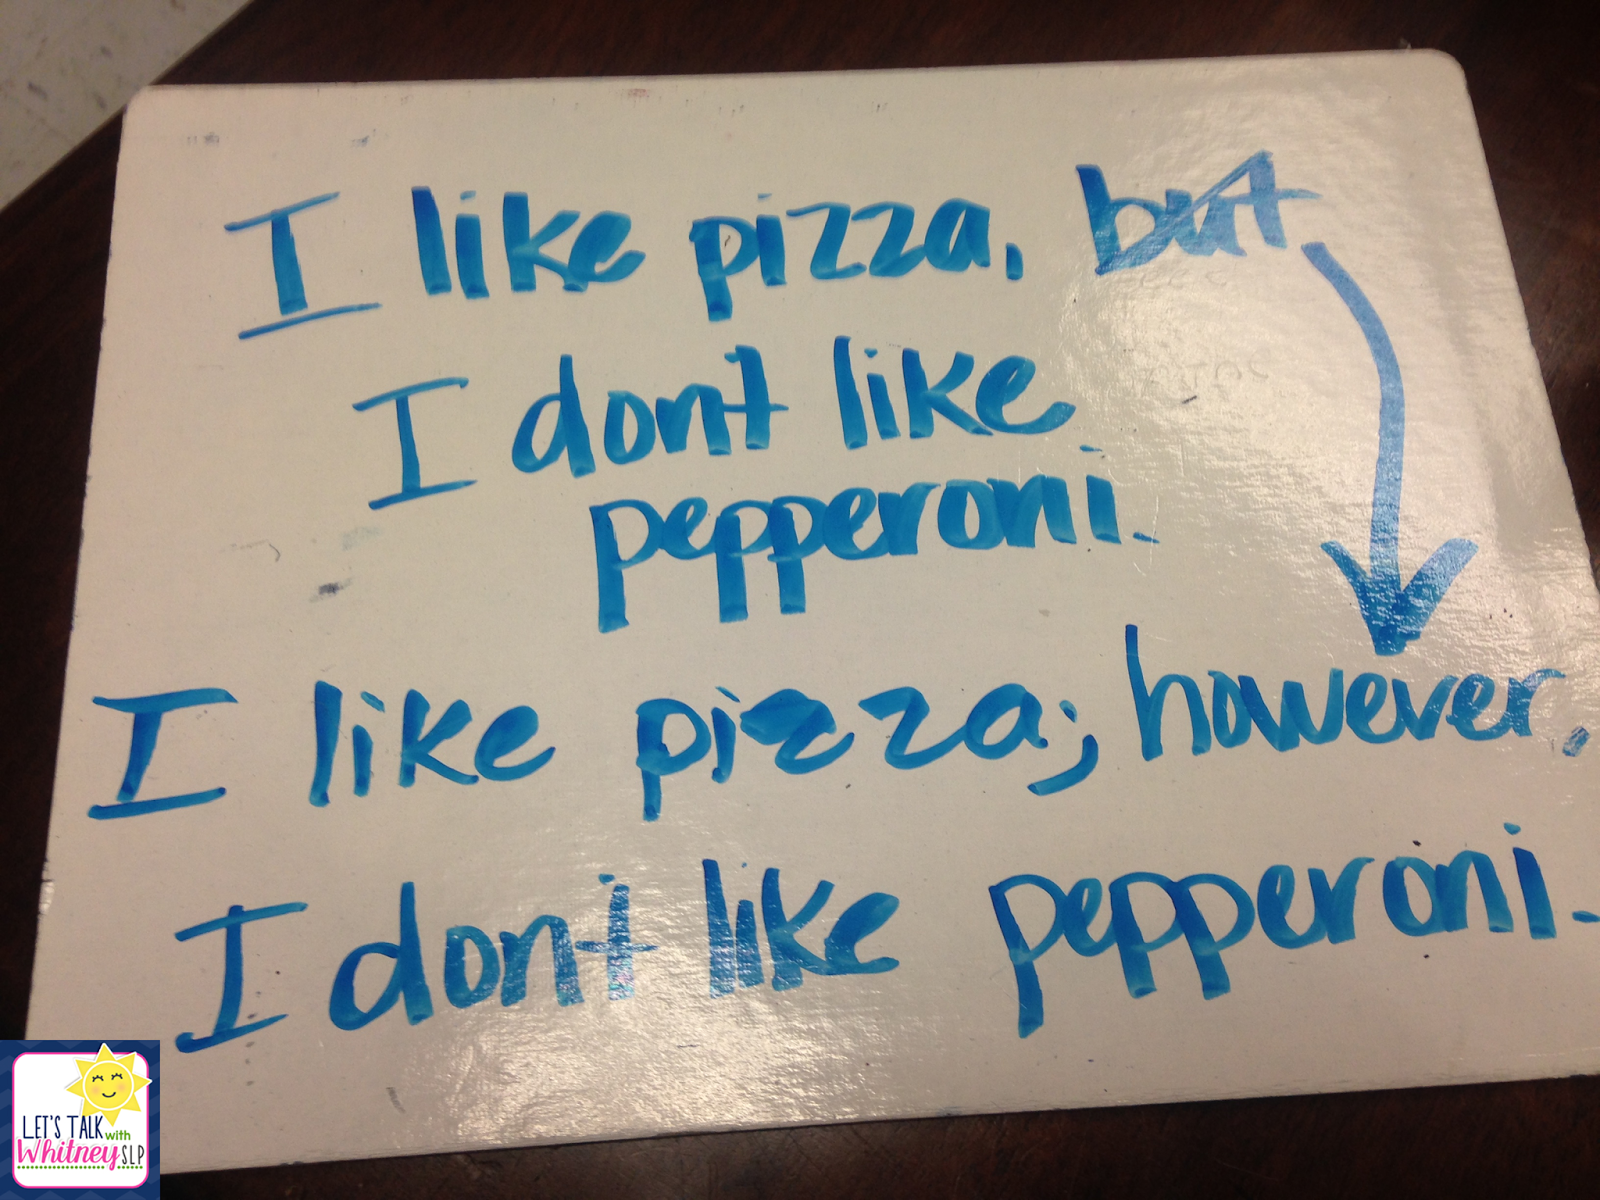 I like pizza, but
I don't like
pepperoni.
I like pizza; however,
I don't like pepperoni.
LET'S TALK with
Whitney SLP